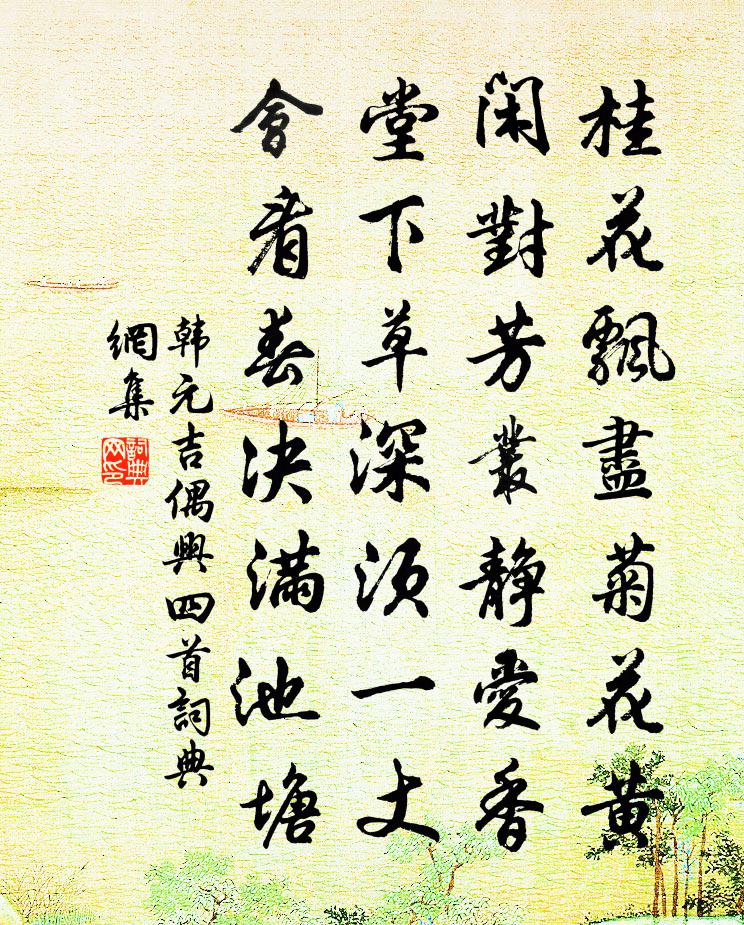 桂花飄盡菊花黄
閑對芳叢静愛香
堂下草深須一丈
會看春决满池塘
韩元吉偶興四首詞典
網集
詞典
网印